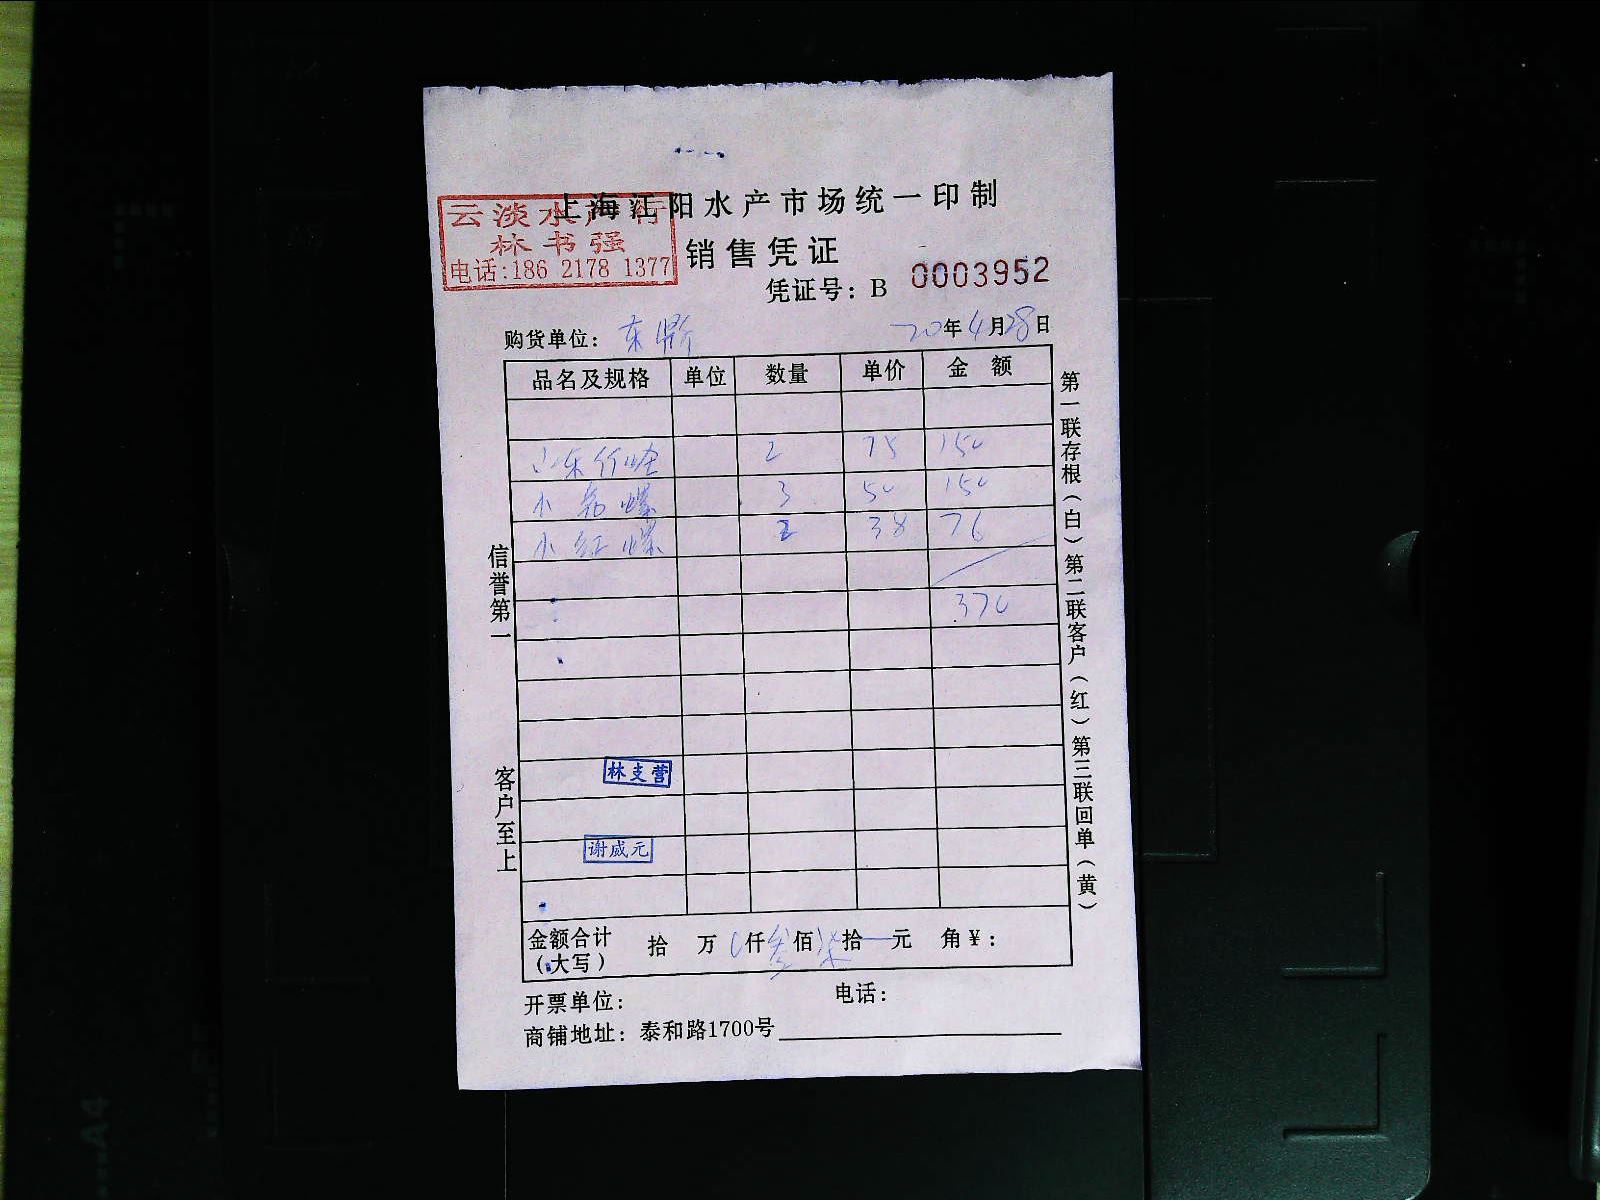 上海江阳水产市场统一印制
云淡水产行
林书强
电话:186 2178 1377
销售凭证
凭证号: B 0003952
购货单位: 东
20年4月28日
品名及规格 单位 数量 单价 金额
山东竹蛏 2 75 150
小 螺 3 50 150
小红螺 2 38 76
370
林支营
谢威元
金额合计(大写) 拾 万 仟叁佰柒拾 元 角¥:
开票单位: 电话:
商铺地址: 泰和路1700号
信誉第一
客户至上
第一联存根(白)第二联客户(红)第三联回单(黄)
A4